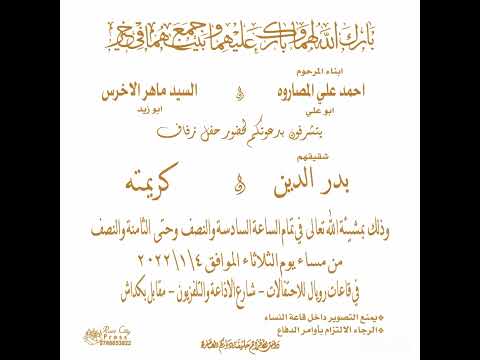 بارك الله لهما وبارك عليهما وجمع بينهما في خير
ابناء المرحوم
احمد علي المصاروه و السيد ماهر الاخرس
ابو علي ابو زيد
يتشرفون بدعوتكم لحضور حفل زفاف
شقيقهم
بدر الدين و كريمته
وذلك بمشيئة الله تعالى في تمام الساعة السادسة والنصف وحتى الثامنة والنصف
من مساء يوم الثلاثاء الموافق ٢٠٢٢/١/٤
في قاعات رويال للاحتفالات - شارع الاذاعة والتلفزيون - مقابل بكداش
يمنع التصوير داخل قاعة النساء
الرجاء الالتزام بأوامر الدفاع
Rose City
Press